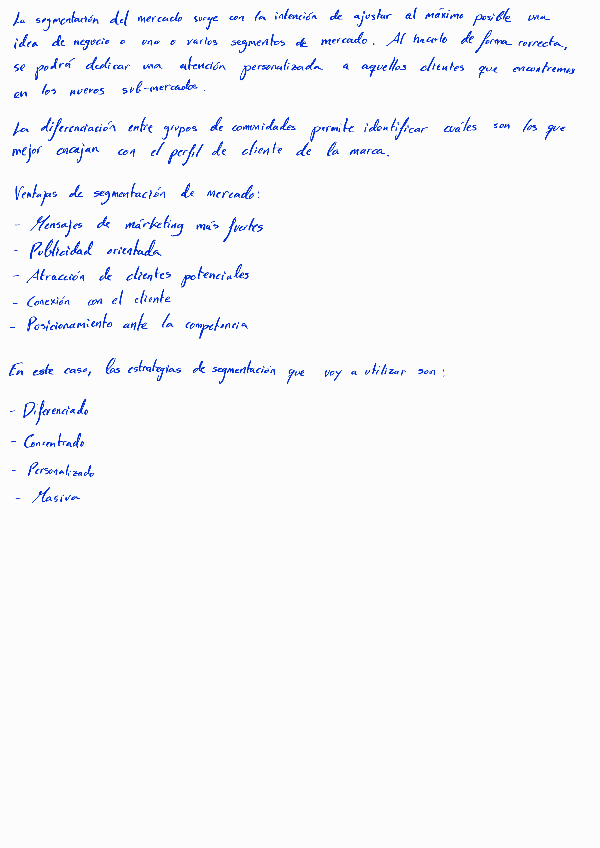 La segmentación del mercado surge con la intención de ajustar al máximo posible una
idea de negocio a uno o varios segmentos de mercado. Al hacerlo de forma correcta,
se podrá dedicar una atención personalizada a aquellos clientes que encontremos
en los nuevos sub-mercados.
La diferenciación entre grupos de comunidades permite identificar cuáles son los que
mejor encajan con el perfil de cliente de la marca.
Ventajas de segmentación de mercado:
- Mensajes de márketing más fuertes
- Publicidad orientada
- Atracción de clientes potenciales
- Conexión con el cliente
- Posicionamiento ante la competencia
En este caso, las estrategias de segmentación que voy a utilizar son:
- Diferenciado
- Concentrado
- Personalizado
- Masiva